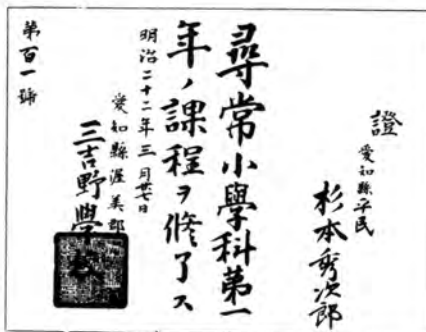 證
愛知縣平民
杉本秀次郎
尋常小學科第一
年ノ課程ヲ修了ス
明治二十二年三月廿七日
愛知縣渥美郡
三吉野學校
第百一號